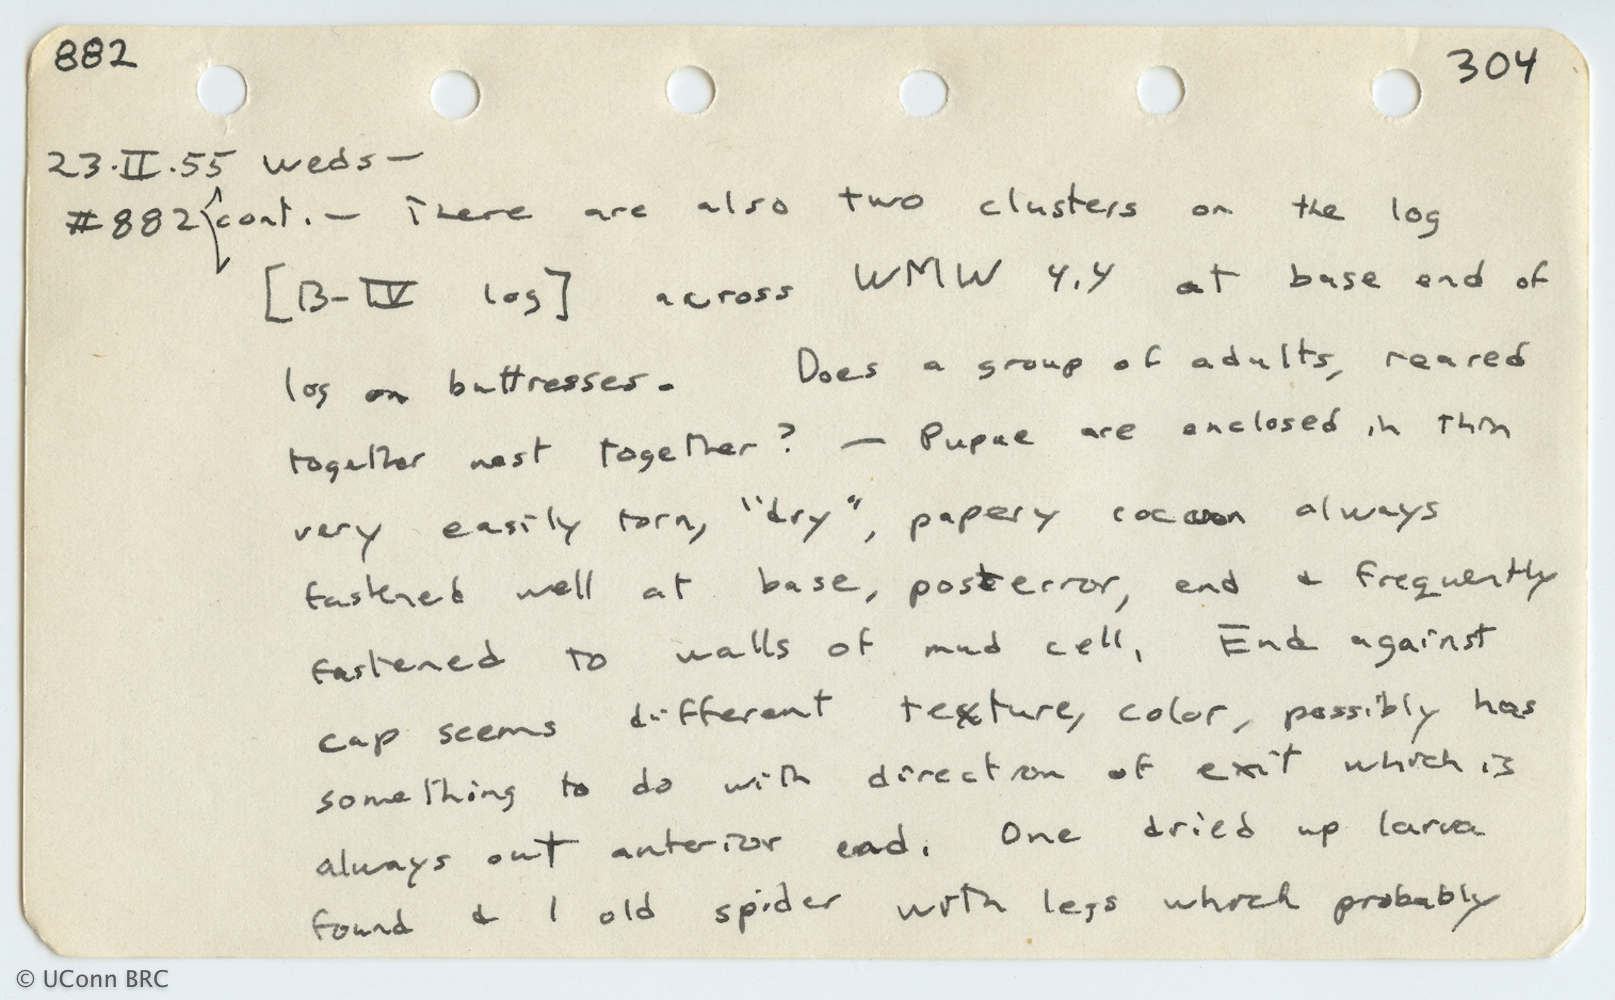 882 304
23·II·55 weds—
#882 cont.— There are also two clusters on the log
[B-IV log] across WMW 4.4 at base end of
log on buttresses. Does a group of adults, reared
together nest together? — Pupae are enclosed in thin
very easily torn, "dry", papery cocoon always
fastened well at base, posterior, end & frequently
fastened to walls of mud cell. End against
cap seems different texture, color, possibly has
something to do with direction of exit which is
always out anterior end. One dried up larva
found & 1 old spider with legs which probably
© UConn BRC